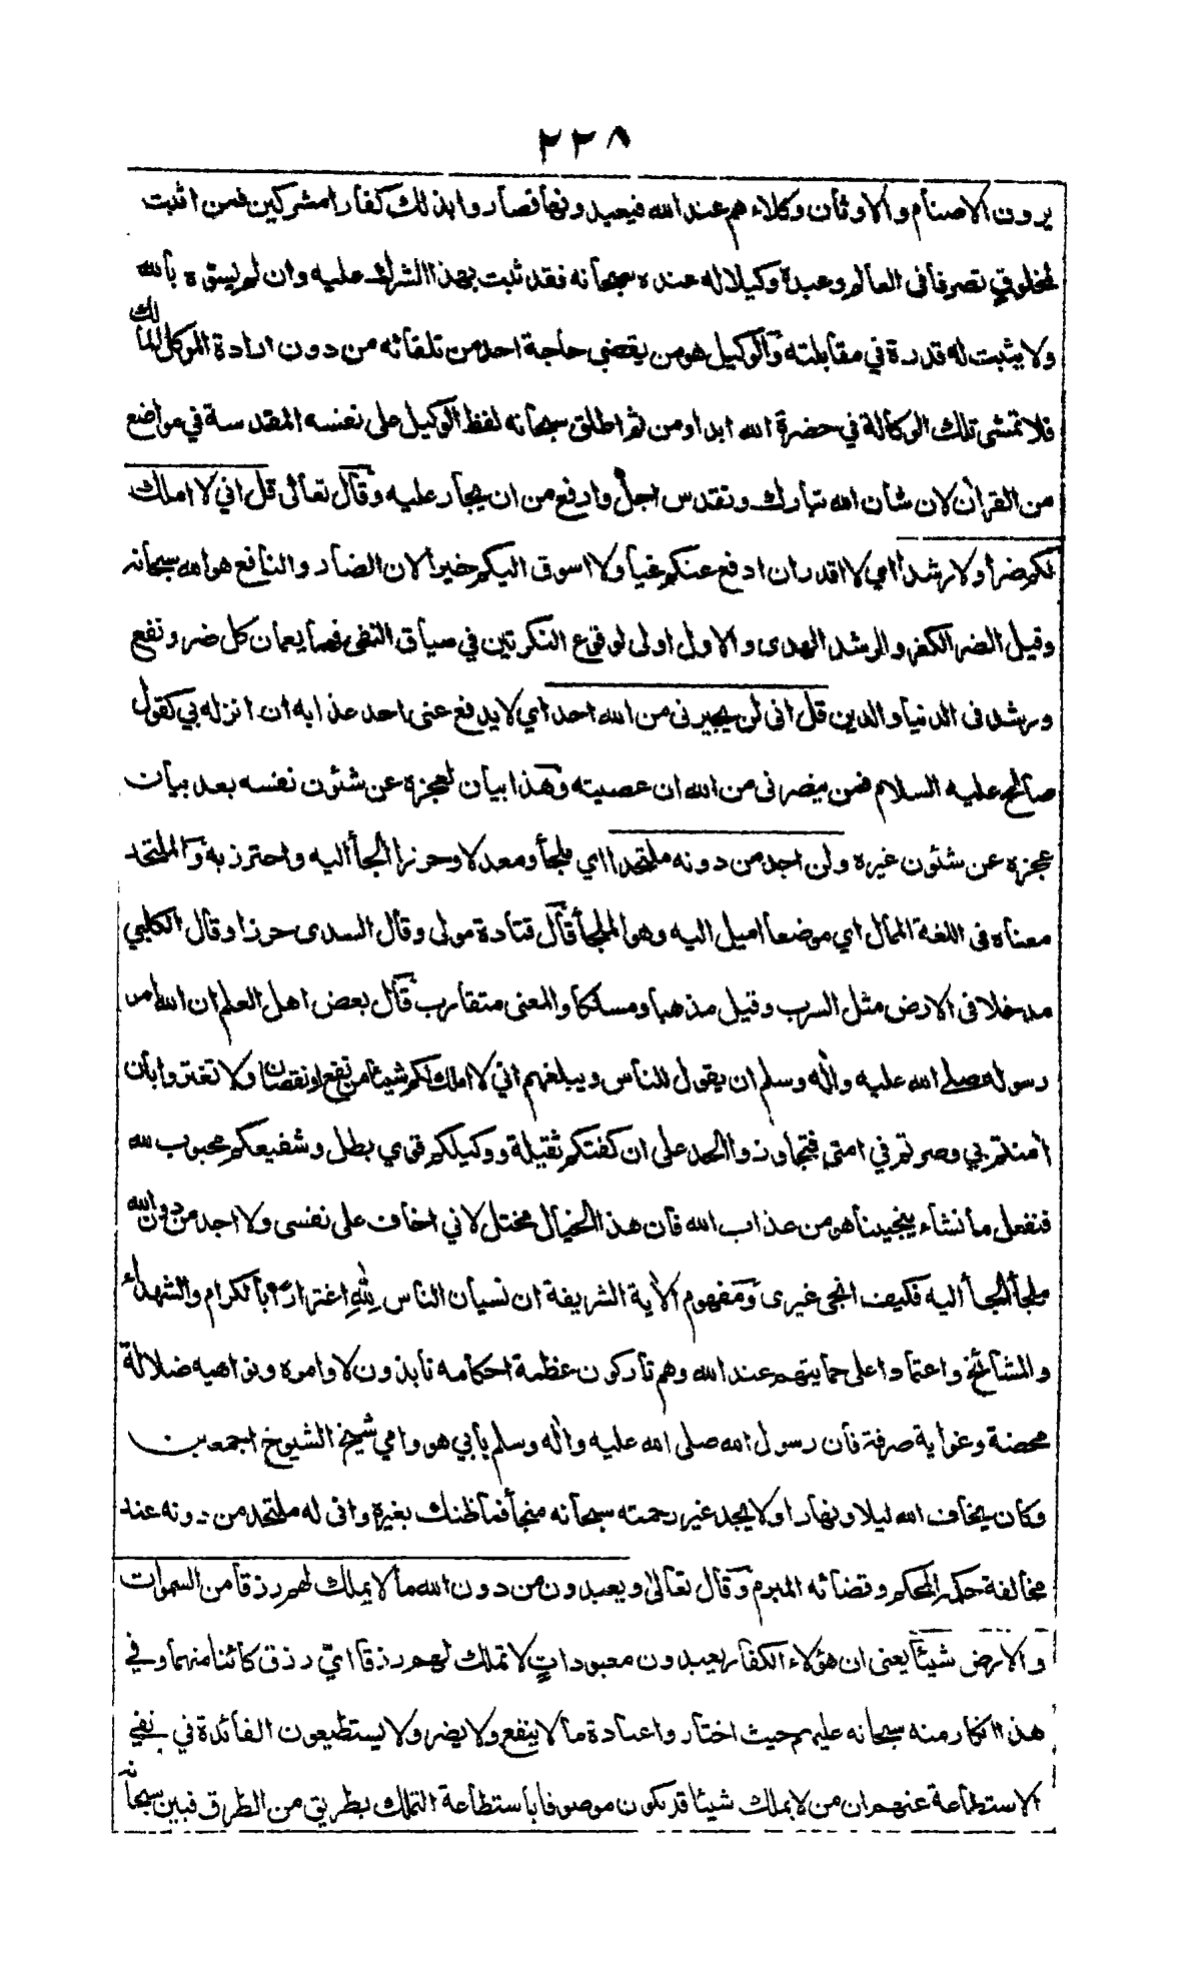 ٢٢٨
يرون الاصنام والاوثان وكلاءهم عند الله فيعبدونها فصاروا بذلك كفارا مشركين فمن اثبت
لمخلوق تصرفا فى العالم وعبده وكيلا له عنده سبحانه فقد ثبت بهذا الشرك عليه وان لم يسوه بالله
ولا يثبت له قدرة في مقابلته والوكيل هو من يقضي حاجة احد من تلقائه من دون ارادة الموكل المالك
فلا تمشى تلك الوكالة في حضرة الله ابدا ومن ثم اطلق سبحانه لفظ الوكيل على نفسه المقدسة في مواضع
من القرآن لان شأن الله تبارك وتقدس اجل وارفع من ان يجار عليه وقال تعالى قل اني لا املك
لكم ضرا ولا رشدا امي لا اقدر ان ادفع عنكم غيا ولا اسوق اليكم خيرا لان الضار والنافع هو الله سبحانه
وقيل الضر الكفر والرشد الهدى والاول اولى لوقوع النكرتين في سياق النفي فهما يعمان كل ضر ونفع
ورشد فى الدنيا والدين قل انى لن يجيرنى من الله احد اي لا يدفع عنى احد عذابه ان انزله بي كقول
صالح عليه السلام فمن ينصرنى من الله ان عصيته وهذا بيان لعجزه عن شئون نفسه بعد بيان
عجزه عن شئون غيره ولن اجد من دونه ملتحدا اي ملجأ ومعدلا وحرزا الجأ اليه واحترز به والملتحد
معناه فى اللغة الممال اي موضعا اميل اليه وهو الملجأ قال قتادة مولى وقال السدى حرزا وقال الكلبي
مدخلا فى الارض مثل السرب وقيل مذهبا ومسلكا والمعنى متقارب قال بعض اهل العلم ان الله امر
رسوله صلى الله عليه واله وسلم ان يقول للناس ويبلغهم اني لا املك لكم شيئا من نفع او نقصان ولا تغتروا بأن
امنتم بي وصرتم في امتي فتجاوزوا الحد على ان كفتكم ثقيلة ووكيلكم قوي بطل وشفيعكم محبوب لله
فنفعل ما نشاء ينجينا هو من عذاب الله فان هذا الخيال مختل لاني اخاف على نفسى ولا اجد من دون الله
ملجأ الجأ اليه فكيف انجى غيرى ومفهوم الآية الشريفة ان نسيان الناس لله اغترارا بالكرام والشهداء
والمشائخ واعتمادا على حمايتهم عند الله وهم تاركون عظمة احكامه نابذون لاوامره ونواهيه ضلالة
محضة وغواية صرفة فان رسول الله صلى الله عليه واله وسلم بأبي هو وامي شيخ الشيوخ اجمعين
وكان يخاف الله ليلا ونهارا ولا يجد غير رحمته سبحانه منجأ فما ظنك بغيره وانى له ملتحد من دونه عند
مخالفة حكمه المحكم وقضائه المبرم وقال تعالى ويعبدون من دون الله ما لا يملك لهم رزقا من السموات
والارض شيئا يعنى ان هؤلاء الكفار يعبدون معبودات لا تملك لهم رزقا اي رزق كائنا منهما وفي
هذا انكار منه سبحانه عليهم حيث اختاروا عبادة ما لا ينفع ولا يضر ولا يستطيعون الفائدة في نفي
الاستطاعة عنهم ان من لا يملك شيئا قد يكون موصوفا باستطاعة التملك بطريق من الطرق فبين سبحانه